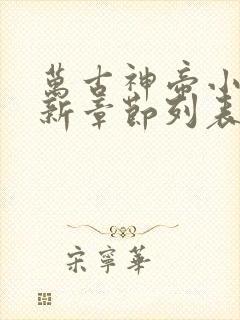 萬古神帝小
新章節列表
宋寧華